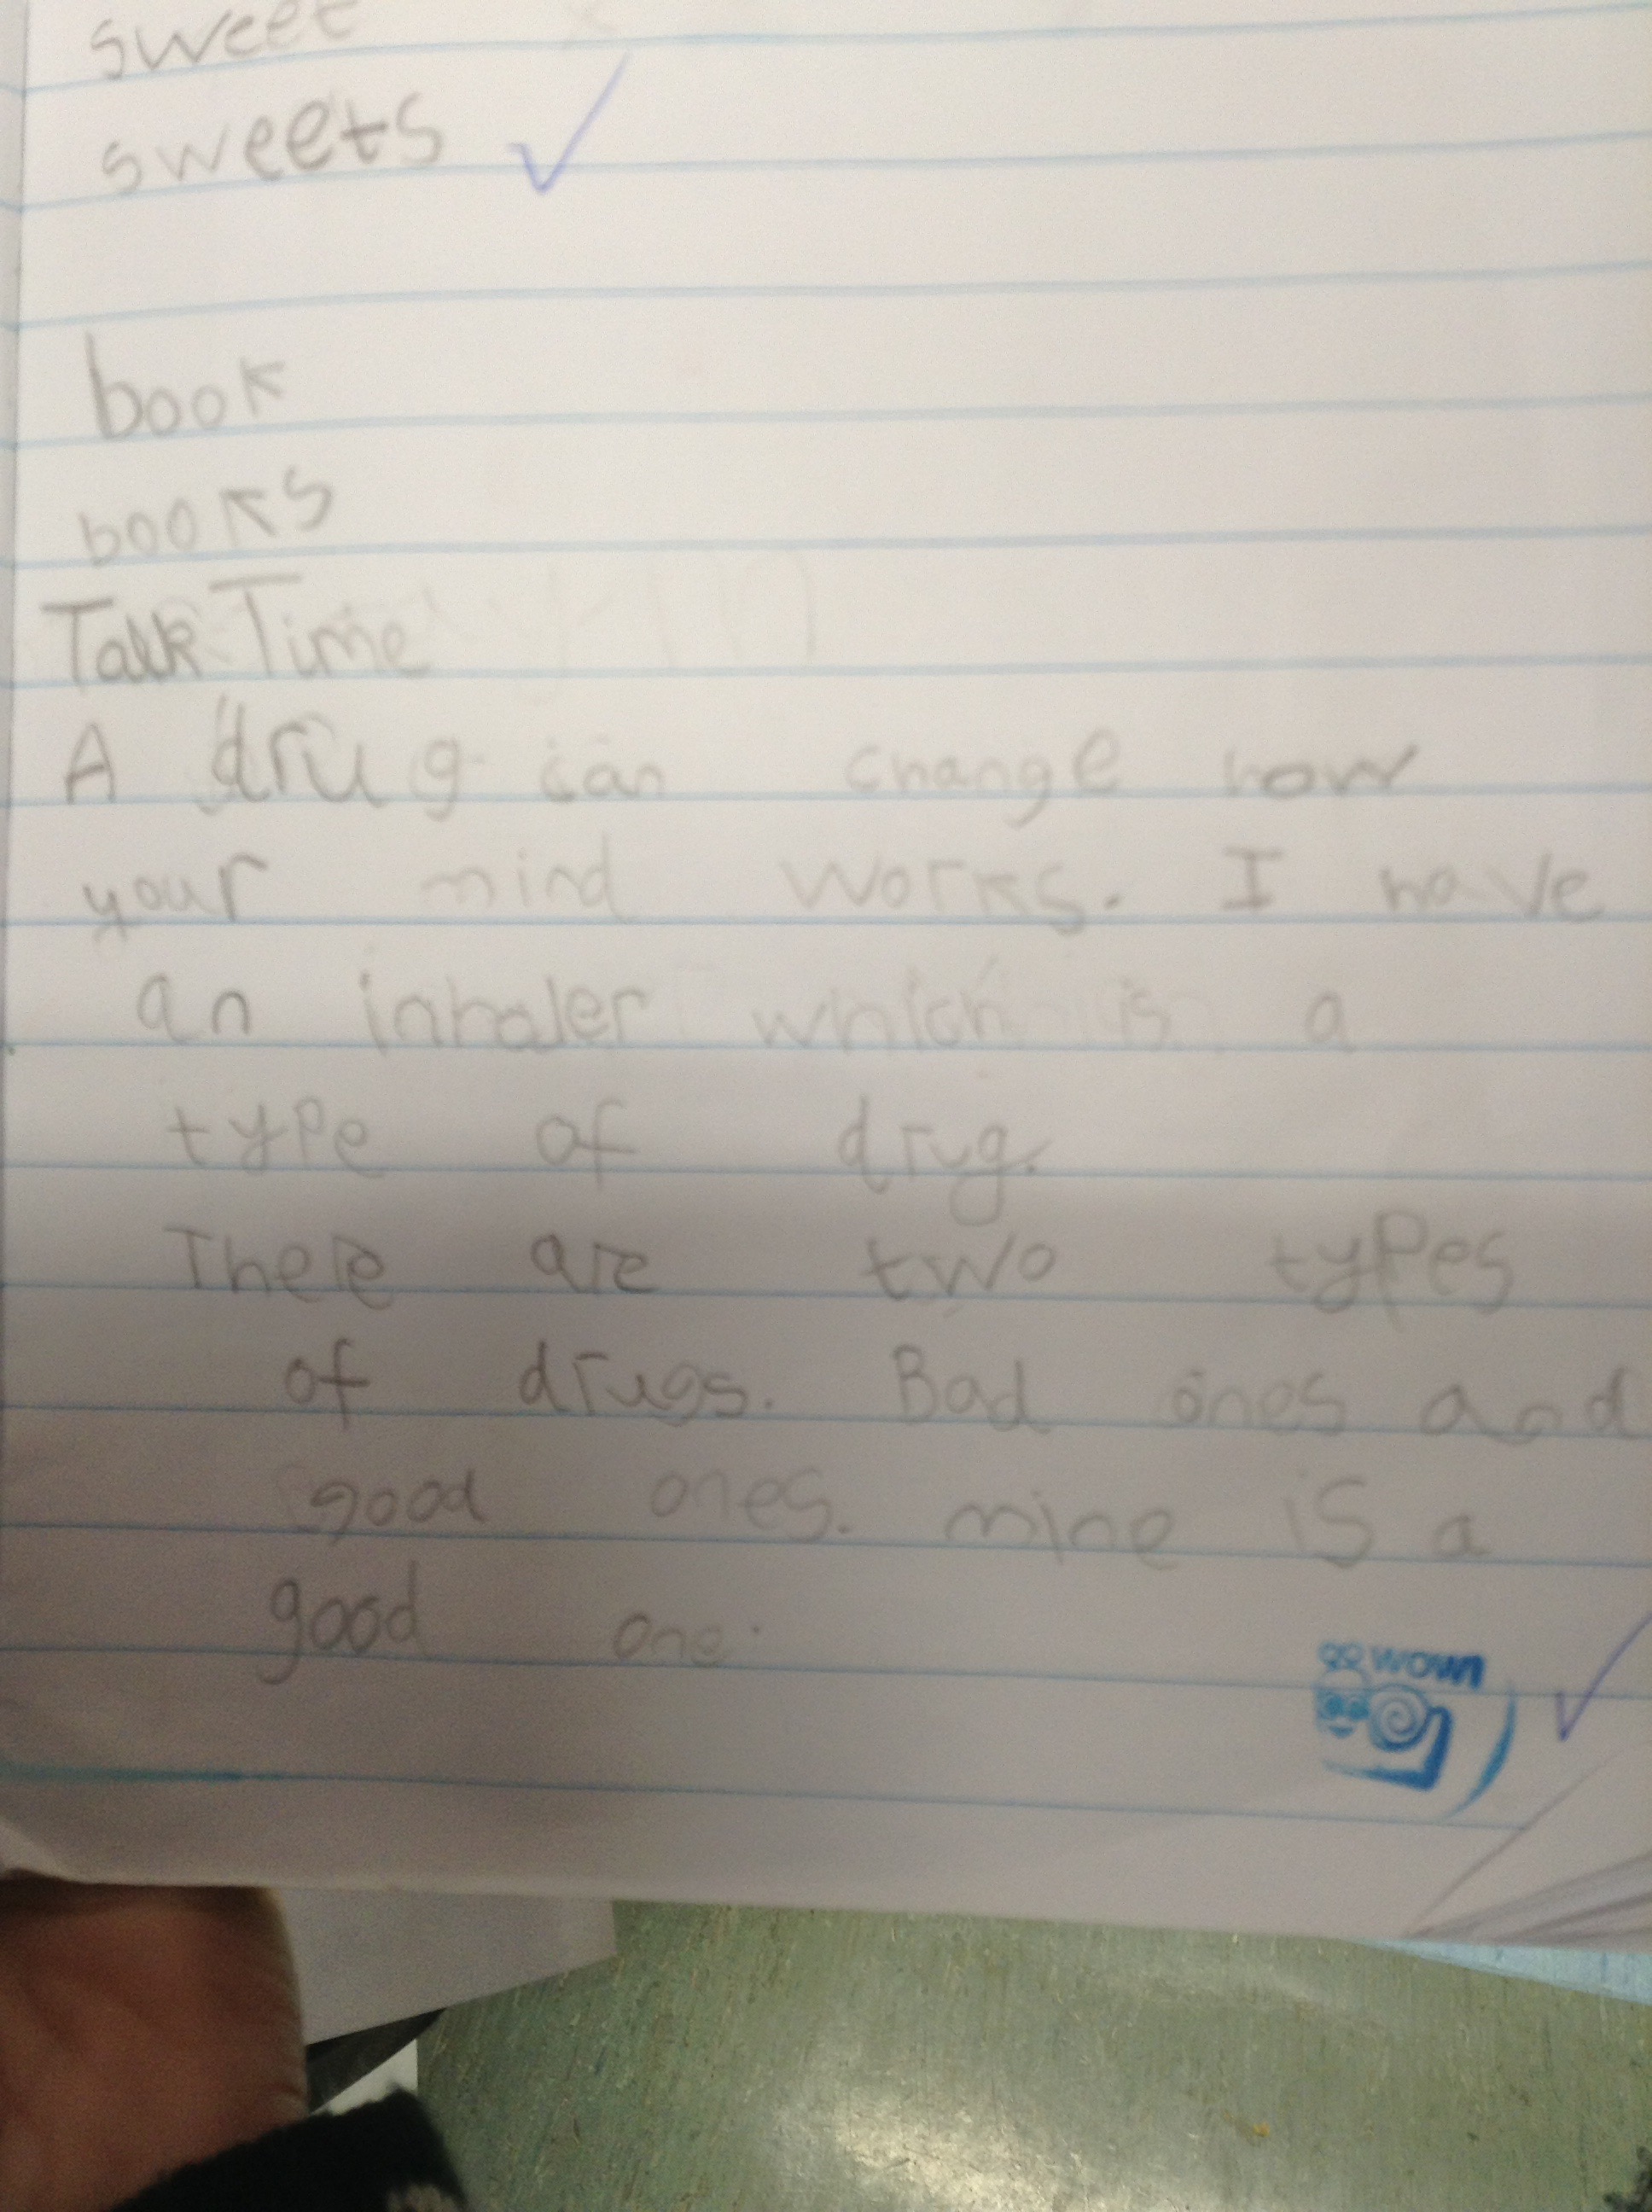 sweet
sweets
book
books
Talk Time
A drug can change how
your mind works. I have
an inhaler which is a
type of drug.
There are two types
of drugs. Bad ones and
good ones. mine is a
good one.
WOW!